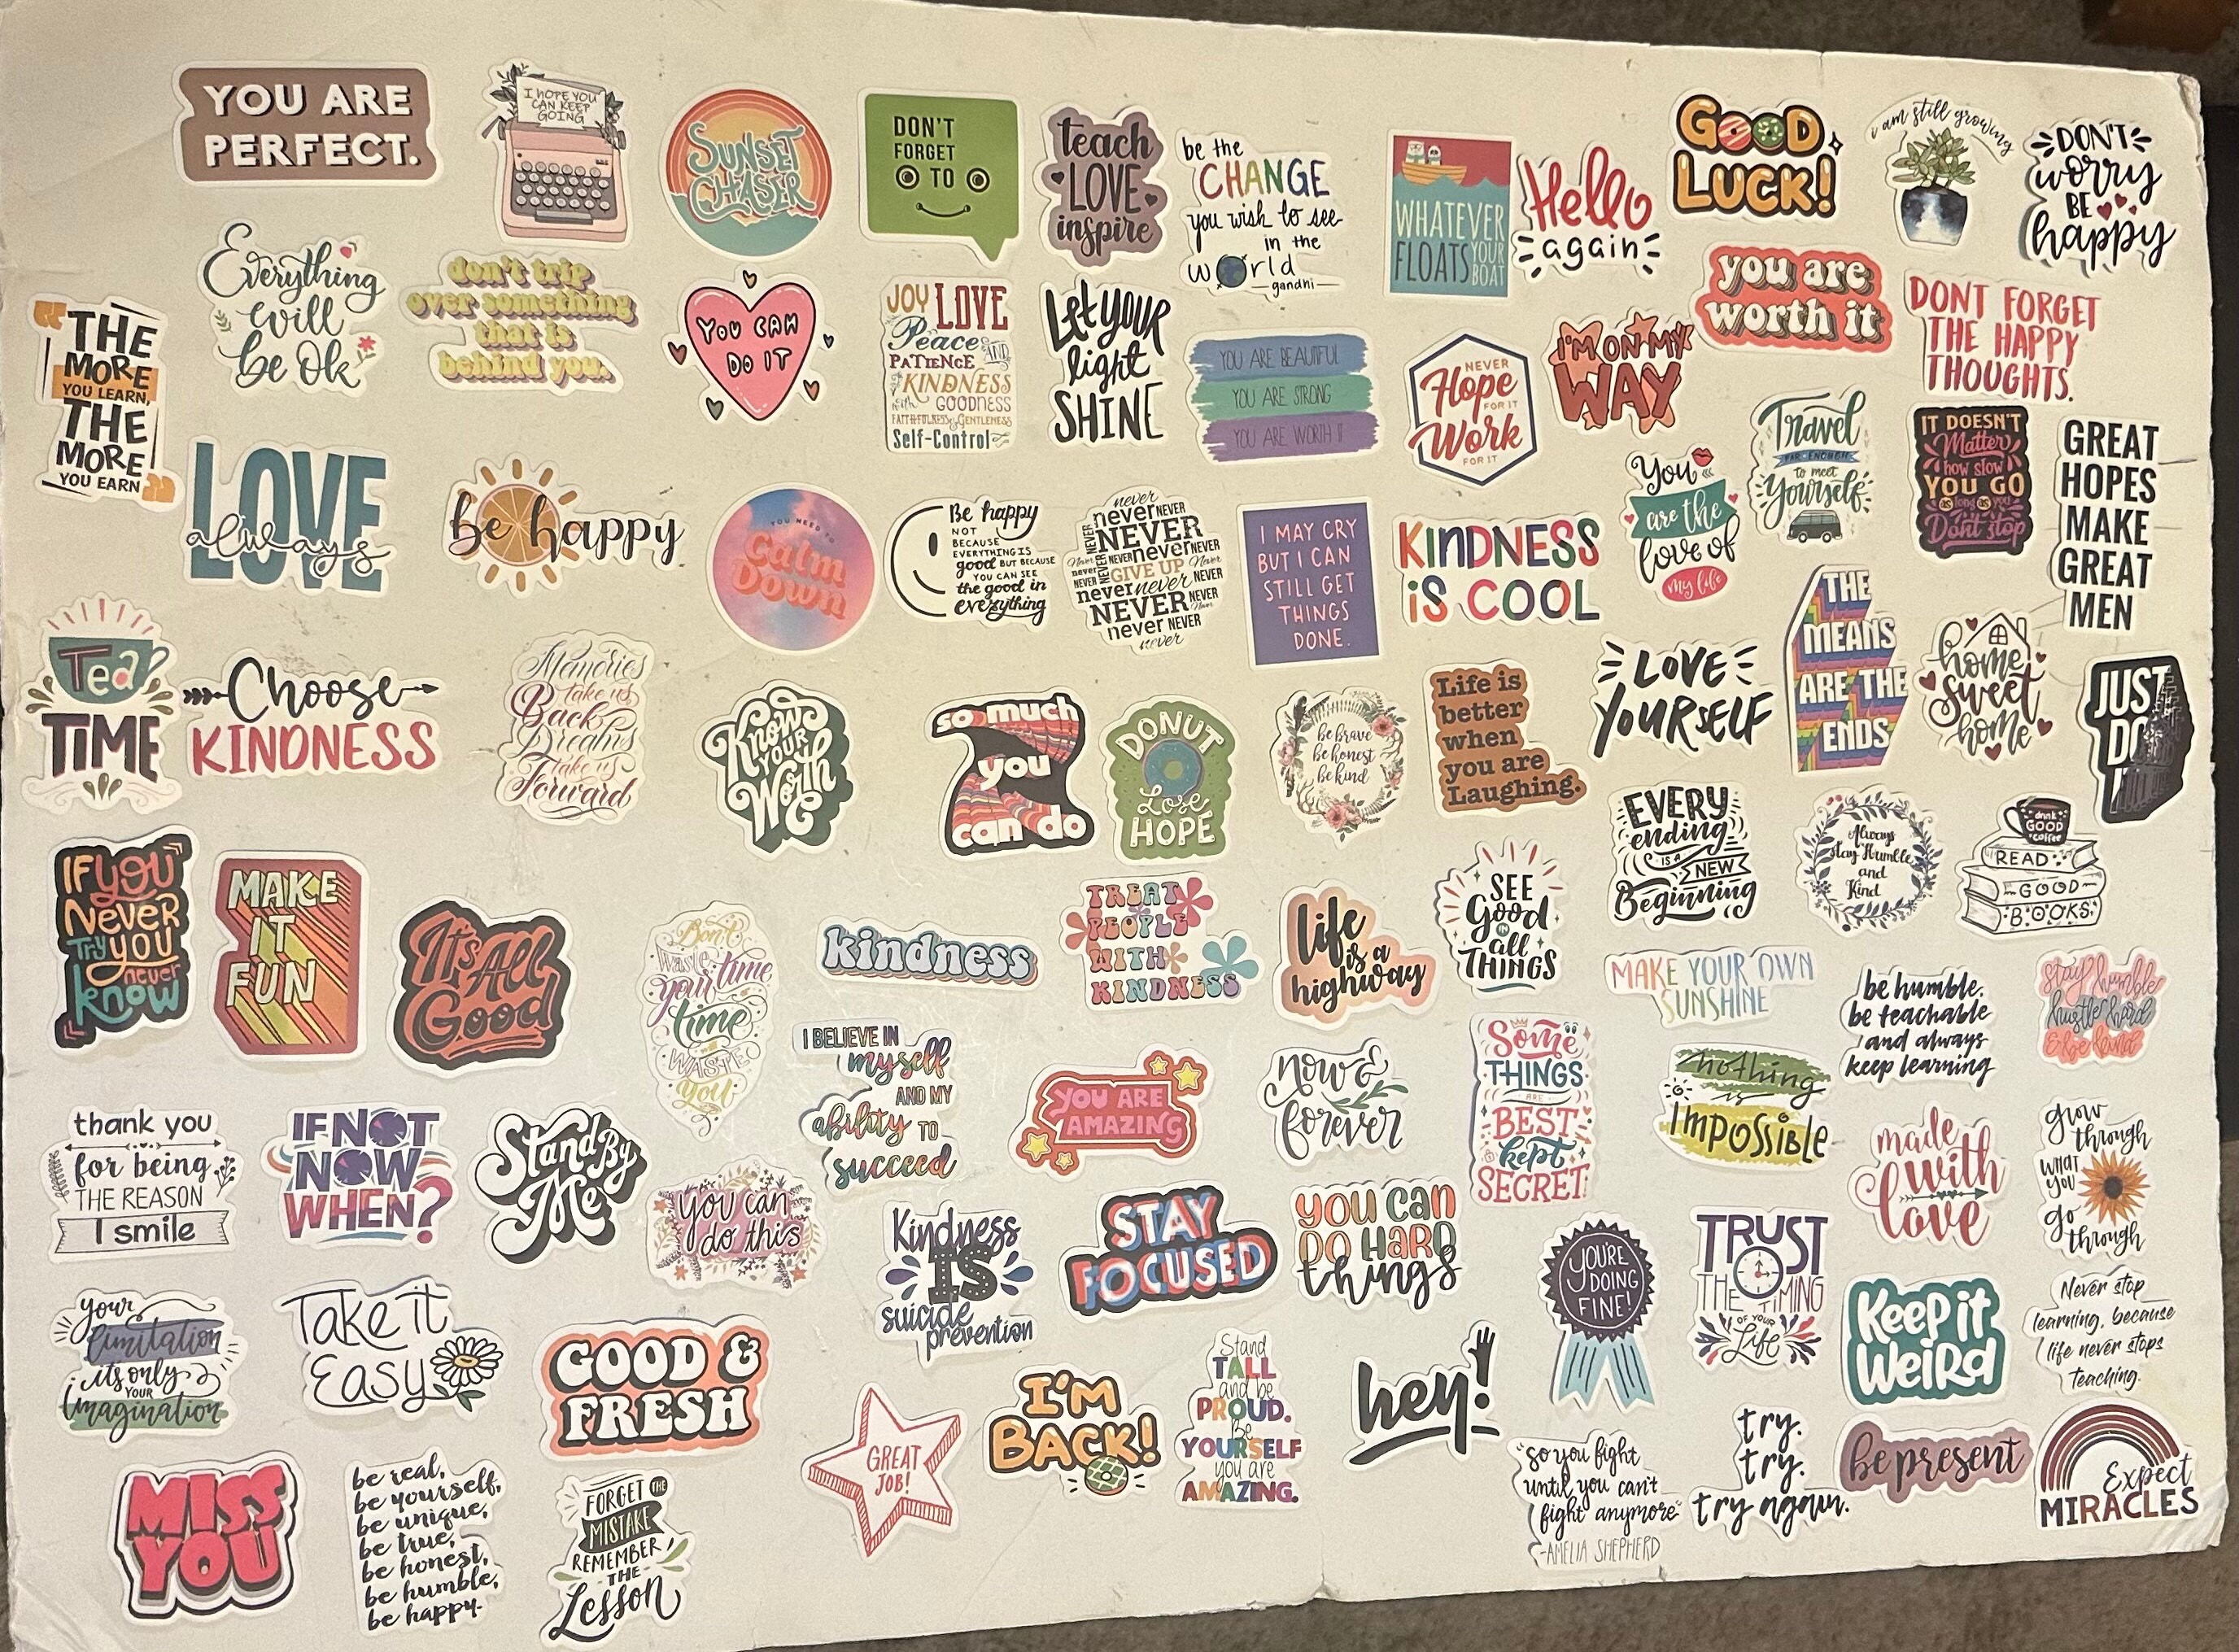 YOU ARE
PERFECT.
I HOPE YOU
CAN KEEP
GOING
SUNSET
CHASER
DON'T
FORGET
TO
teach
LOVE
inspire
be the
CHANGE
you wish to see
in the
world
gandhi
WHATEVER
FLOATS YOUR
BOAT
Hello
again
GOOD
LUCK!
i am still growing
DON'T
worry
BE
happy
Everything
will
be ok
don't trip
over something
that is
behind you.
YOU CAN
DO IT
JOY LOVE
Peace AND
PATIENCE
KINDNESS
with GOODNESS
FAITHFULNESS & GENTLENESS
Self-Control
Let YOUR
light
SHINE
YOU ARE BEAUTIFUL
YOU ARE STRONG
YOU ARE WORTH IT
NEVER
Hope
FOR IT
Work
FOR IT
I'M ON MY
WAY
you are
worth it
DONT FORGET
THE HAPPY
THOUGHTS.
THE
MORE
YOU LEARN,
THE
MORE
YOU EARN
LOVE
always
be happy
YOU NEED TO
Calm
Down
Be happy
NOT
BECAUSE
EVERYTHING IS
good BUT BECAUSE
YOU CAN SEE
the good in
everything
never
never NEVER
NEVER
NEVER never NEVER
never GIVE UP Never
NEVER never NEVER
never NEVER
NEVER NEVER
never NEVER
never
I MAY CRY
BUT I CAN
STILL GET
THINGS
DONE.
KINDNESS
iS COOL
You
are the
love of
my life
Travel
FAR ENOUGH
to meet
Yourself
IT DOESN'T
Matter
how slow
YOU GO
as long as you
Dont stop
GREAT
HOPES
MAKE
GREAT
MEN
Tea
TIME
Choose
KINDNESS
Memories
take us
Back
Dreams
take us
Forward
Know
YOUR
Worth
so much
you
can do
DONUT
Lose
HOPE
be brave
be honest
be kind
Life is
better
when
you are
Laughing.
LOVE
YOURSELF
THE
MEANS
ARE THE
ENDS
home
sweet
home
JUST
DO
IF YOU
Never
Try you
never
know
MAKE
IT
FUN
It's All
Good
Don't
waste
your time
time
WASTE
you
kindness
TREAT
PEOPLE
WITH
KINDNESS
life
is a
highway
SEE
Good
IN
all
THINGS
EVERY
ending
IS A
NEW
Beginning
Always
stay Humble
and
Kind
drink
GOOD
coffee
READ
GOOD
BOOKS
I BELIEVE IN
myself
AND MY
ability TO
succeed
YOU ARE
AMAZING
now &
forever
Some
THINGS
ARE
BEST
kept
SECRET
MAKE YOUR OWN
SUNSHINE
be humble.
be teachable
and always
keep learning
stay humble
hustle hard
& be kind
nothing
is
IMPOSSIBLE
thank you
for being
THE REASON
I smile
IF NOT
NOW
WHEN?
Stand By
Me
you can
do this
Kindness
IS
suicide
prevention
STAY
FOCUSED
YOU CAN
DO HARD
things
YOU'RE
DOING
FINE!
TRUST
THE TIMING
OF YOUR
Life
made
with
love
grow
through
WHAT
you
go
through
your
limitation
its only
YOUR
imagination
Take it
Easy
GOOD &
FRESH
GREAT
JOB!
I'M
BACK!
Stand
TALL
and be
PROUD.
Be
YOURSELF
you are
AMAZING.
hey!
Keep it
Weird
Never stop
learning, because
life never stops
teaching.
MISS
YOU
be real,
be yourself,
be unique,
be true,
be honest,
be humble,
be happy.
FORGET THE
MISTAKE
REMEMBER
THE
Lesson
"so you fight
until you can't
fight anymore"
-AMELIA SHEPHERD
try.
try.
try.
try again.
be present
Expect
MIRACLES